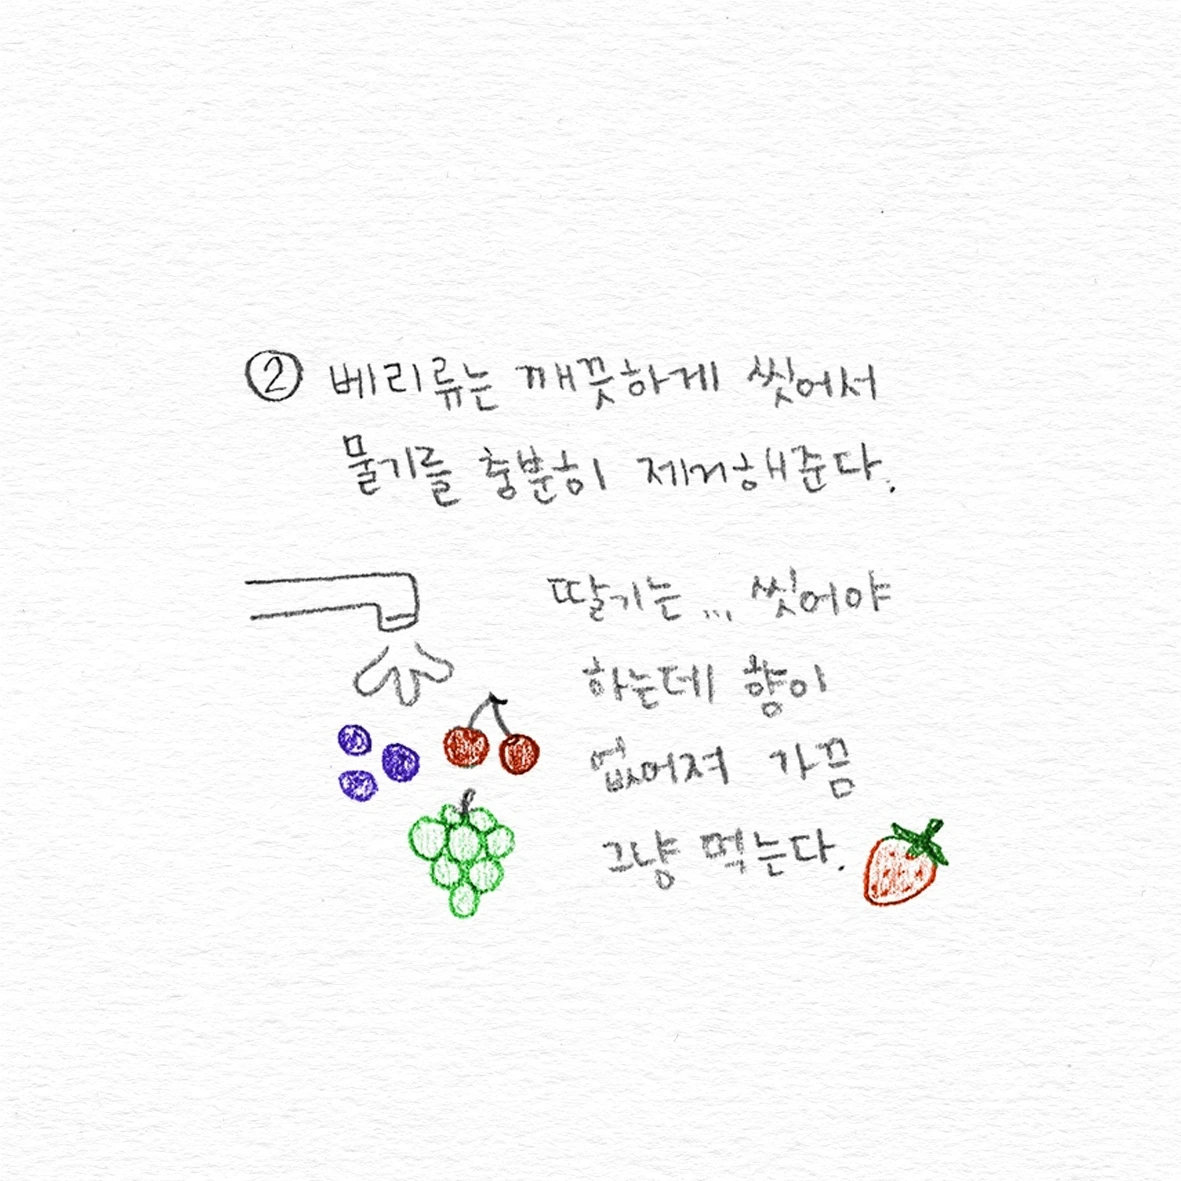 ② 베리류는 깨끗하게 씻어서
물기를 충분히 제거해준다.
딸기는... 씻어야
하는데 향이
없어져 가끔
그냥 먹는다.